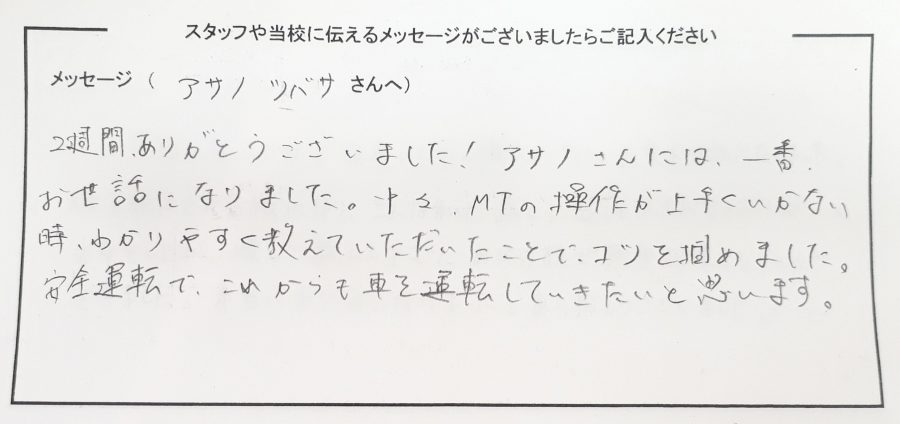 スタッフや当校に伝えるメッセージがございましたらご記入ください
メッセージ（ アサノ ツバサ さんへ）
2週間、ありがとうございました！アサノさんには、一番、
お世話になりました。中々、MTの操作が上手くいかない
時、わかりやすく教えていただいたことで、コツを掴めました。
安全運転で、これからも車を運転していきたいと思います。